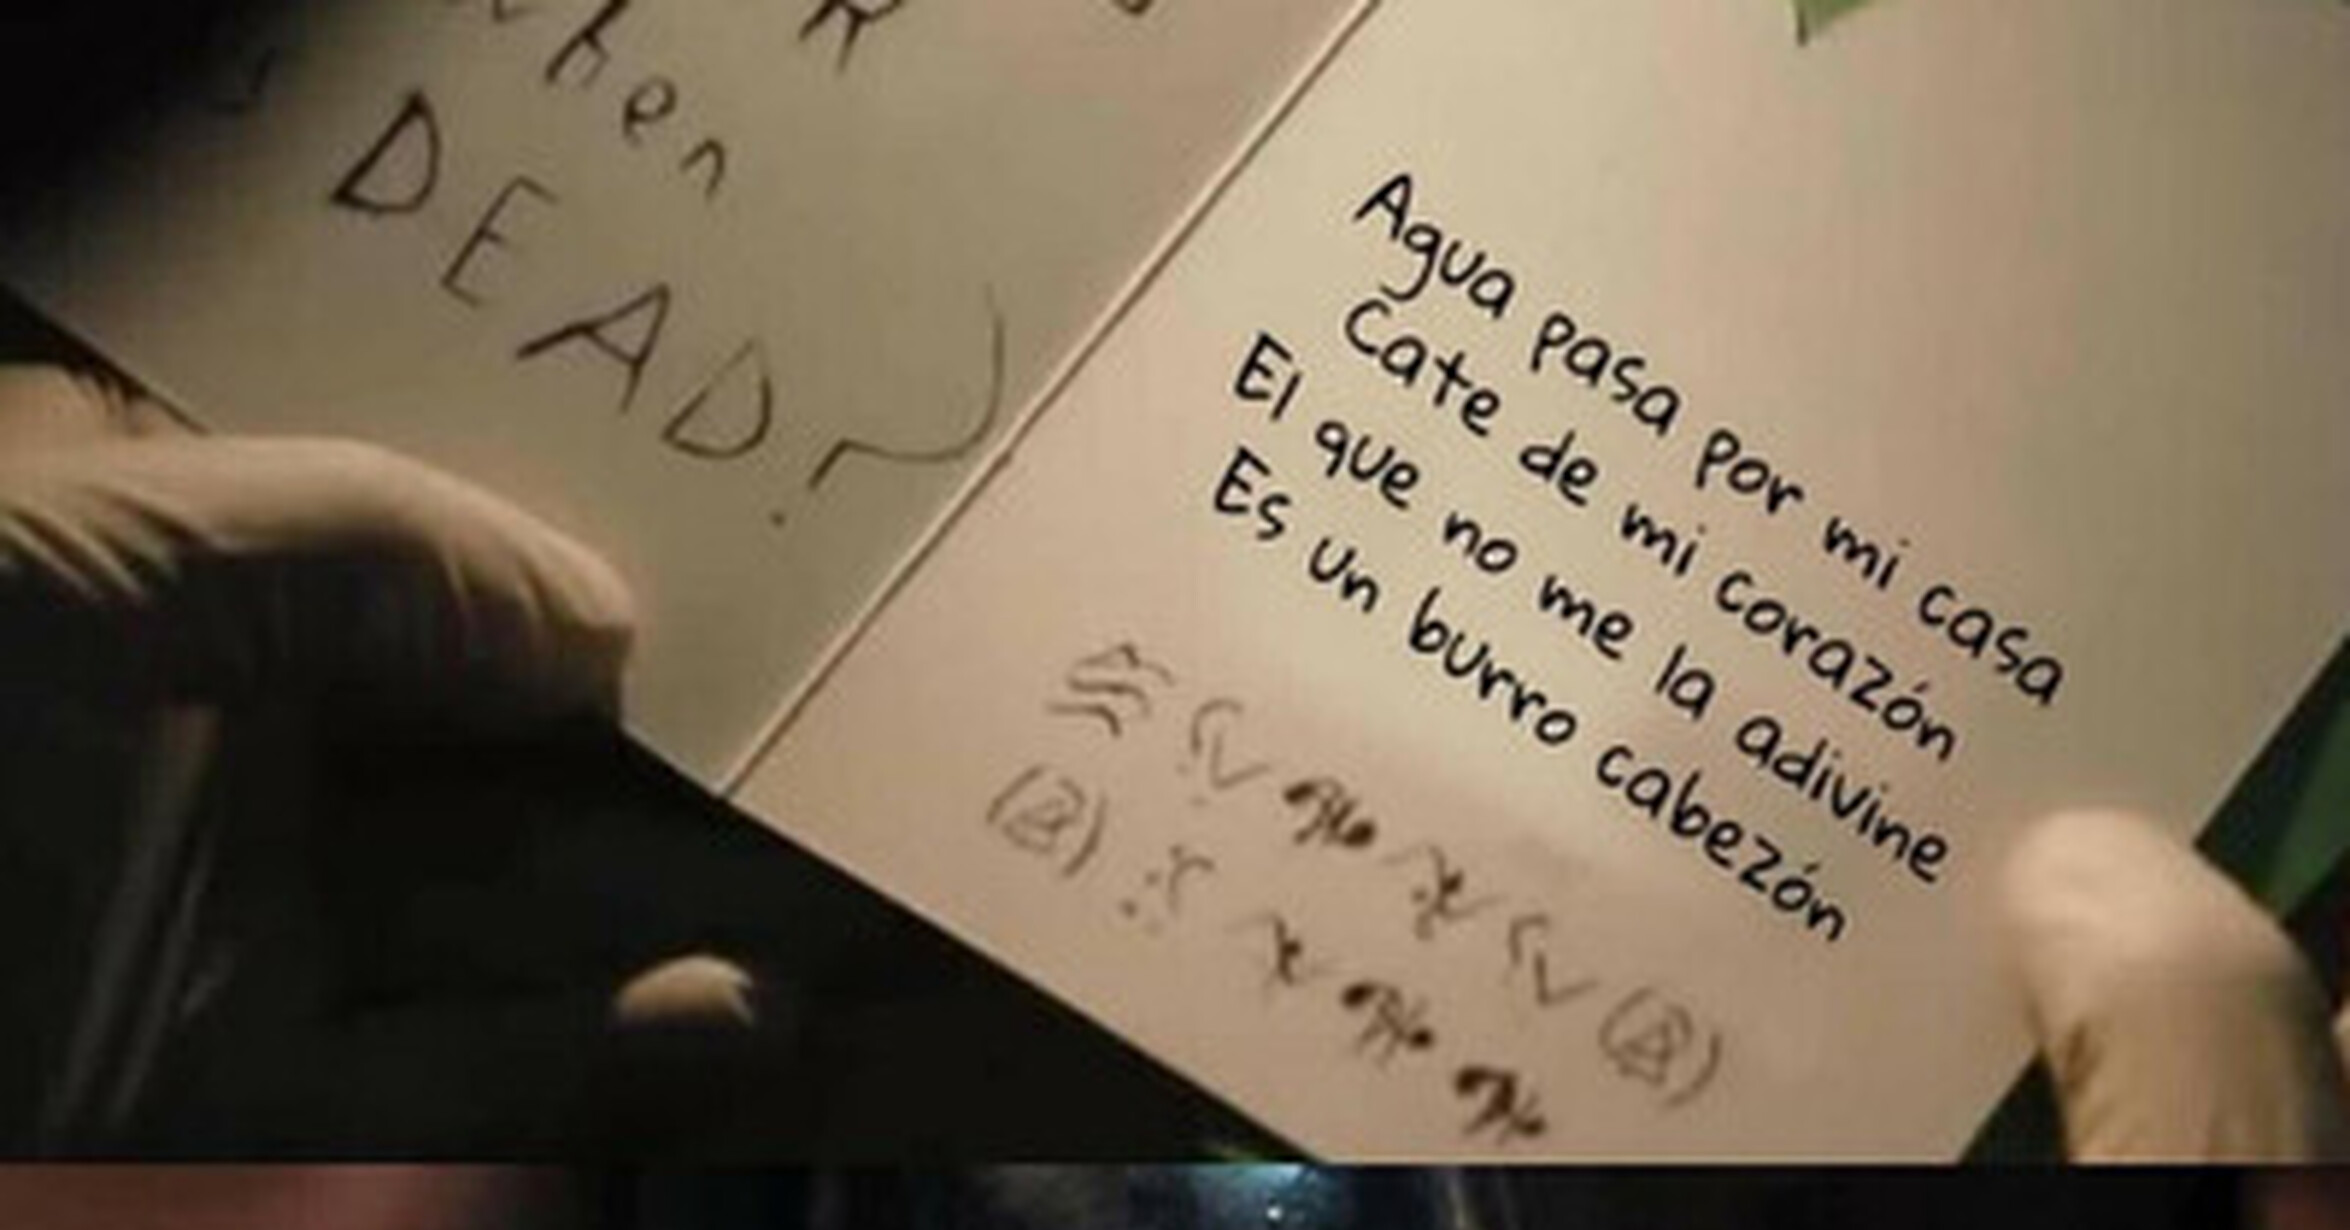 hen
DEAD
Agua pasa por mi casa
Cate de mi corazón
El que no me la adivine
Es un burro cabezón